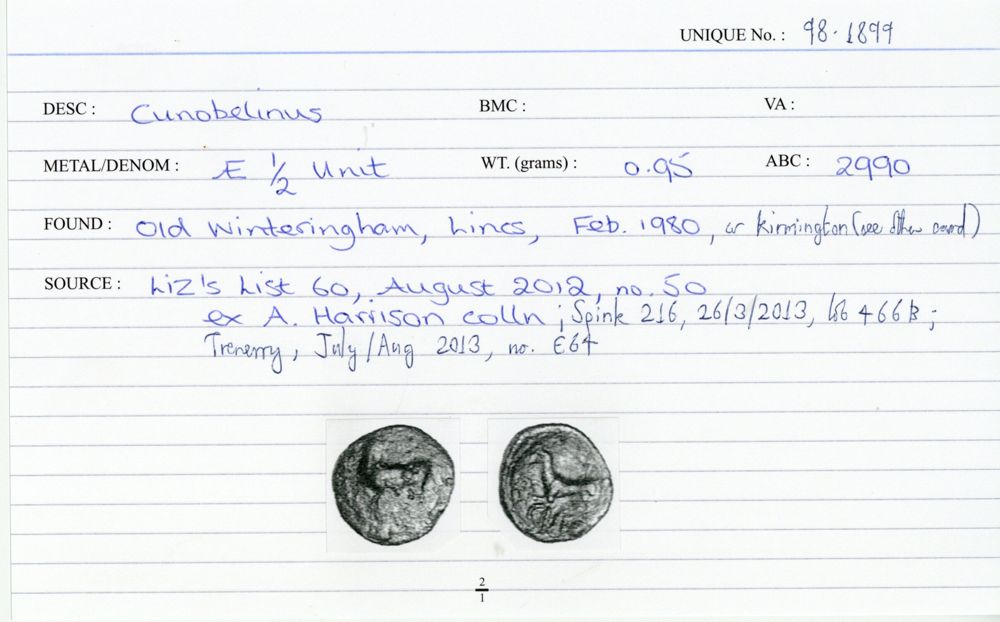 UNIQUE No. : 98.1899
DESC : Cunobelinus BMC : VA :
METAL/DENOM : Æ 1/2 Unit WT. (grams) : 0.95 ABC : 2990
FOUND : Old Winteringham, Lincs, Feb. 1980, or Kirmington (see other card)
SOURCE : Liz's List 60, August 2012, no. 50
ex A. Harrison colln ; Spink 216, 26/3/2013, lot 466B ;
Trenerry, July/Aug 2013, no. E64
2
1